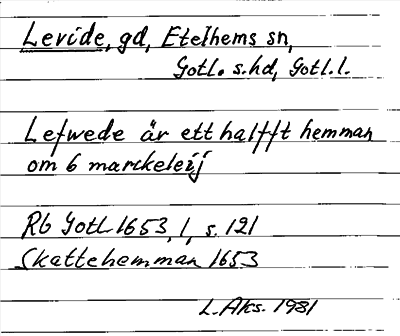 Levide, gd, Etelhems sn,
Gotl. s. hd, Gotl. l.
Lefwede är ett halfft hemman
om 6 marckeleij
Rb Gotl 1653, 1, s. 121
Skattehemman 1653
L. Aks. 1981